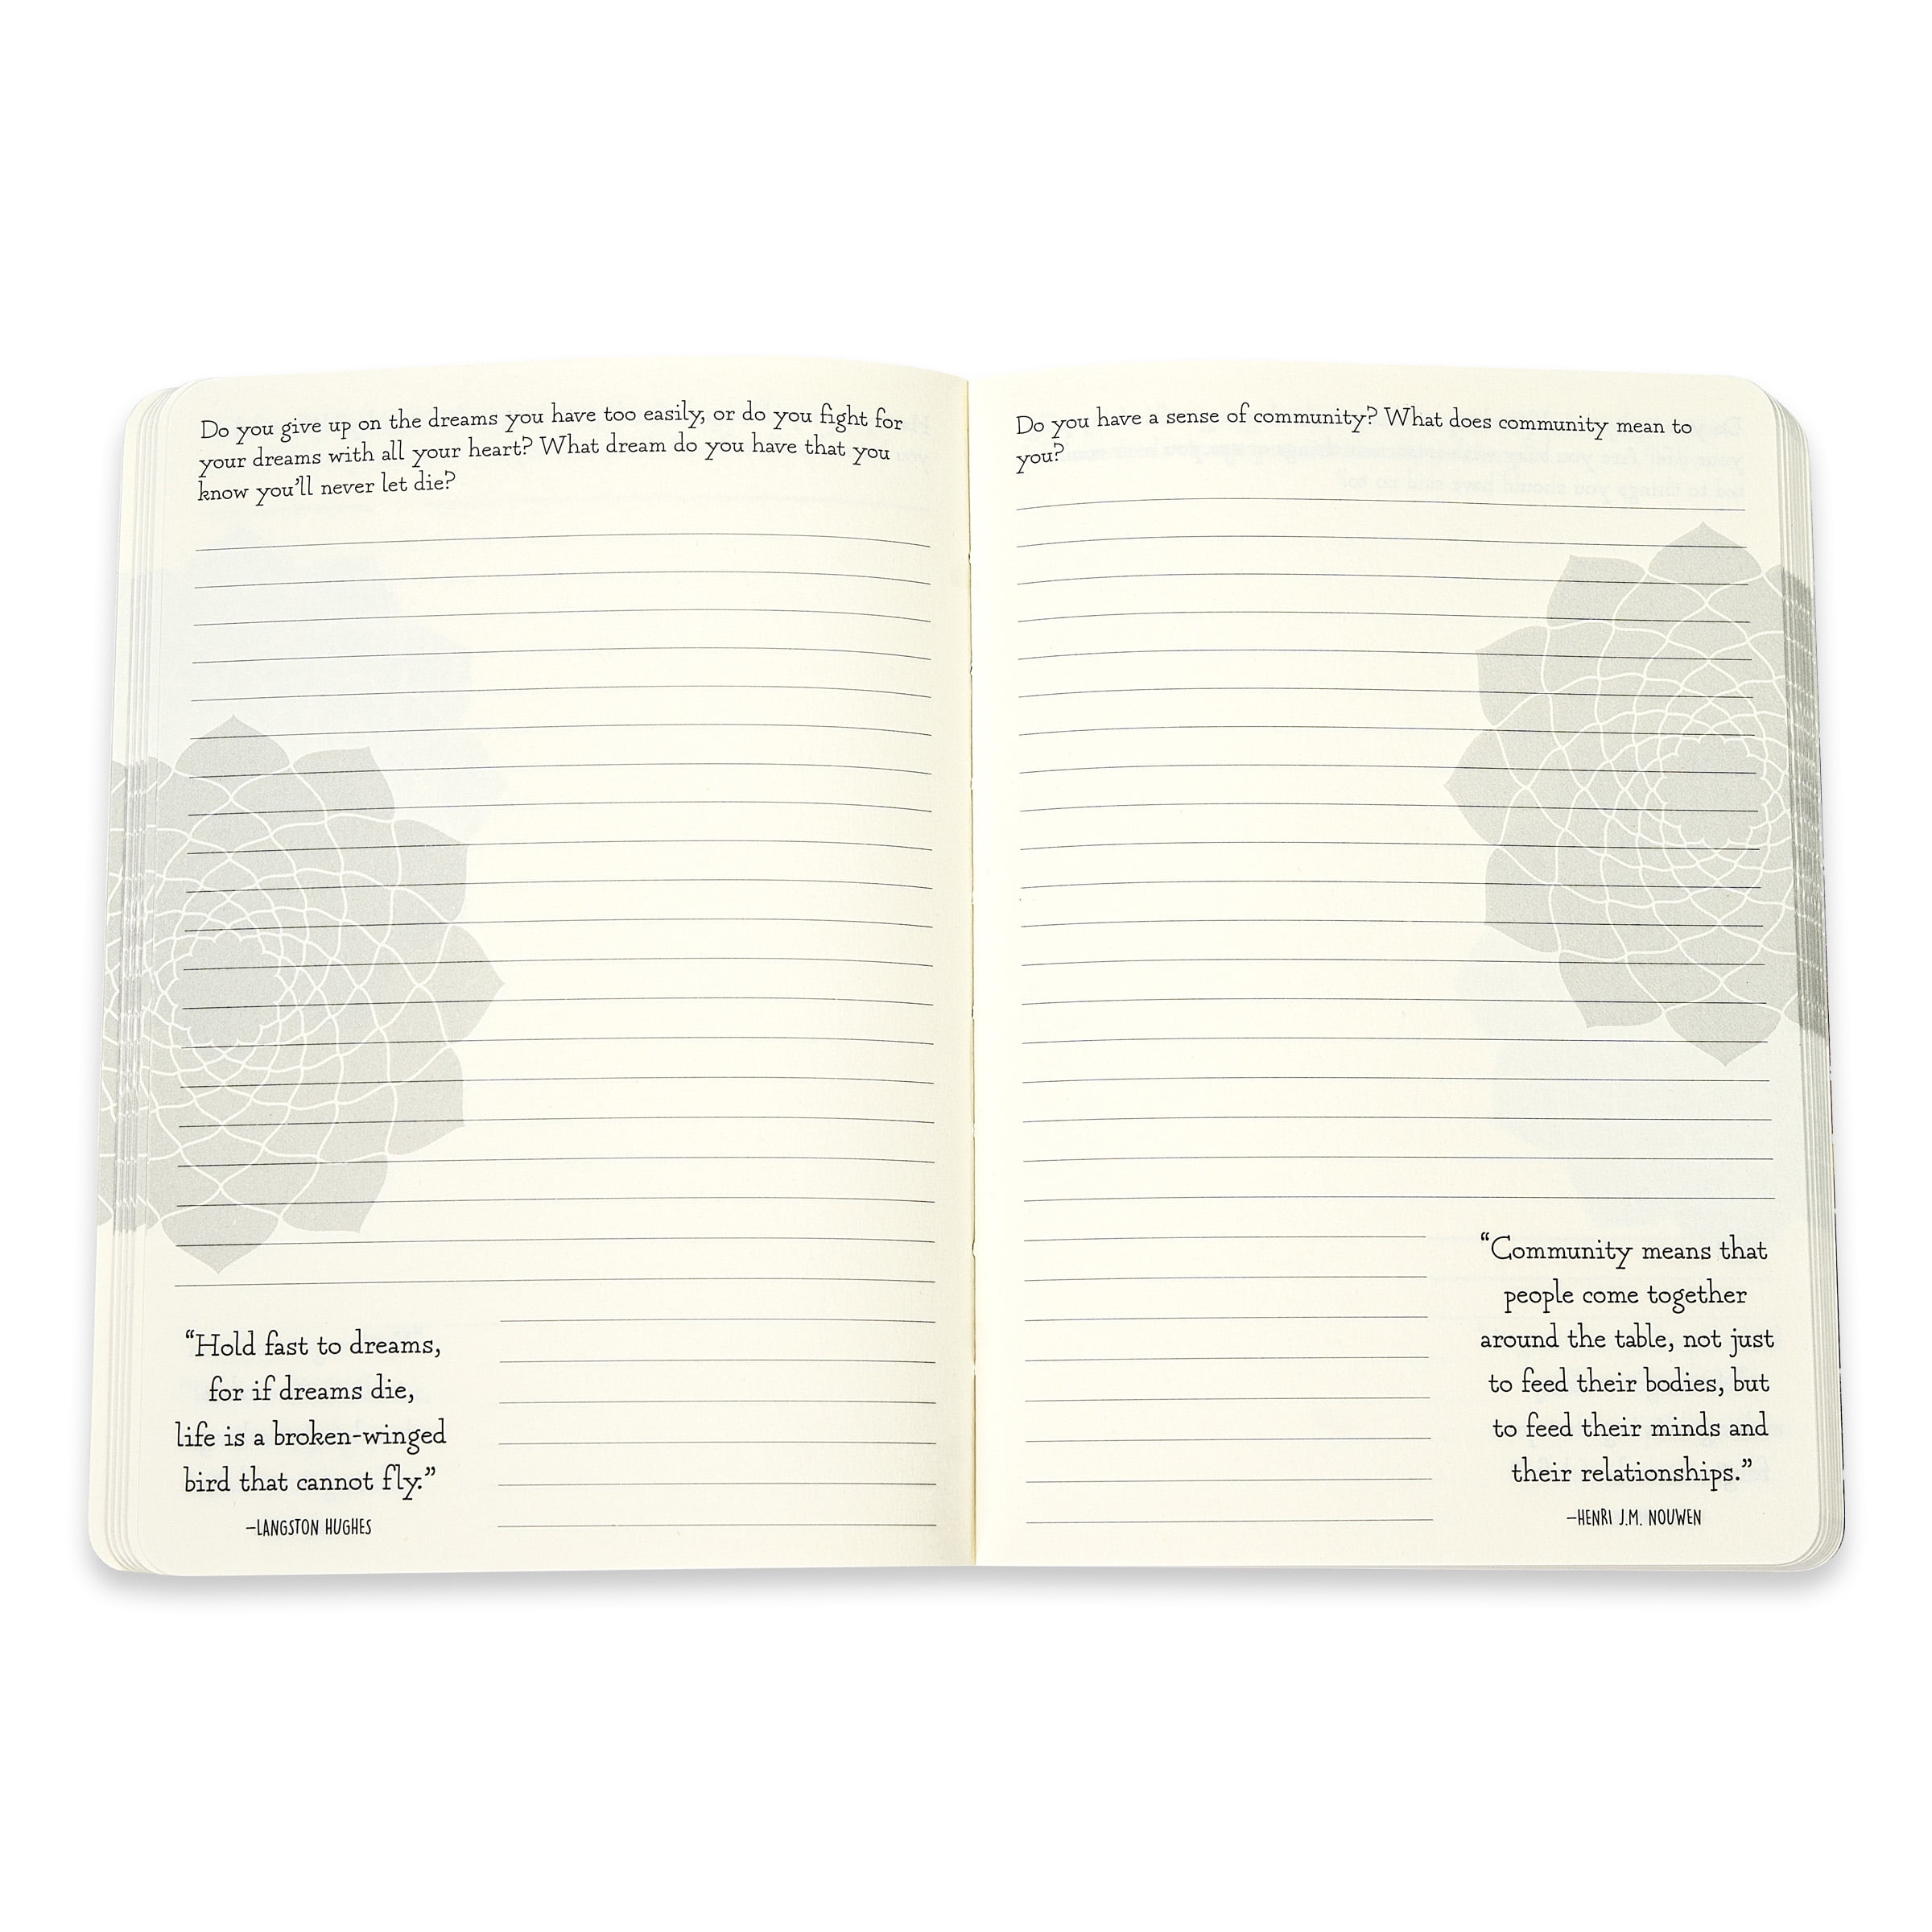 Do you give up on the dreams you have too easily, or do you fight for
your dreams with all your heart? What dream do you have that you
know you'll never let die?
“Hold fast to dreams,
for if dreams die,
life is a broken-winged
bird that cannot fly.”
–LANGSTON HUGHES
Do you have a sense of community? What does community mean to
you?
“Community means that
people come together
around the table, not just
to feed their bodies, but
to feed their minds and
their relationships.”
–HENRI J.M. NOUWEN